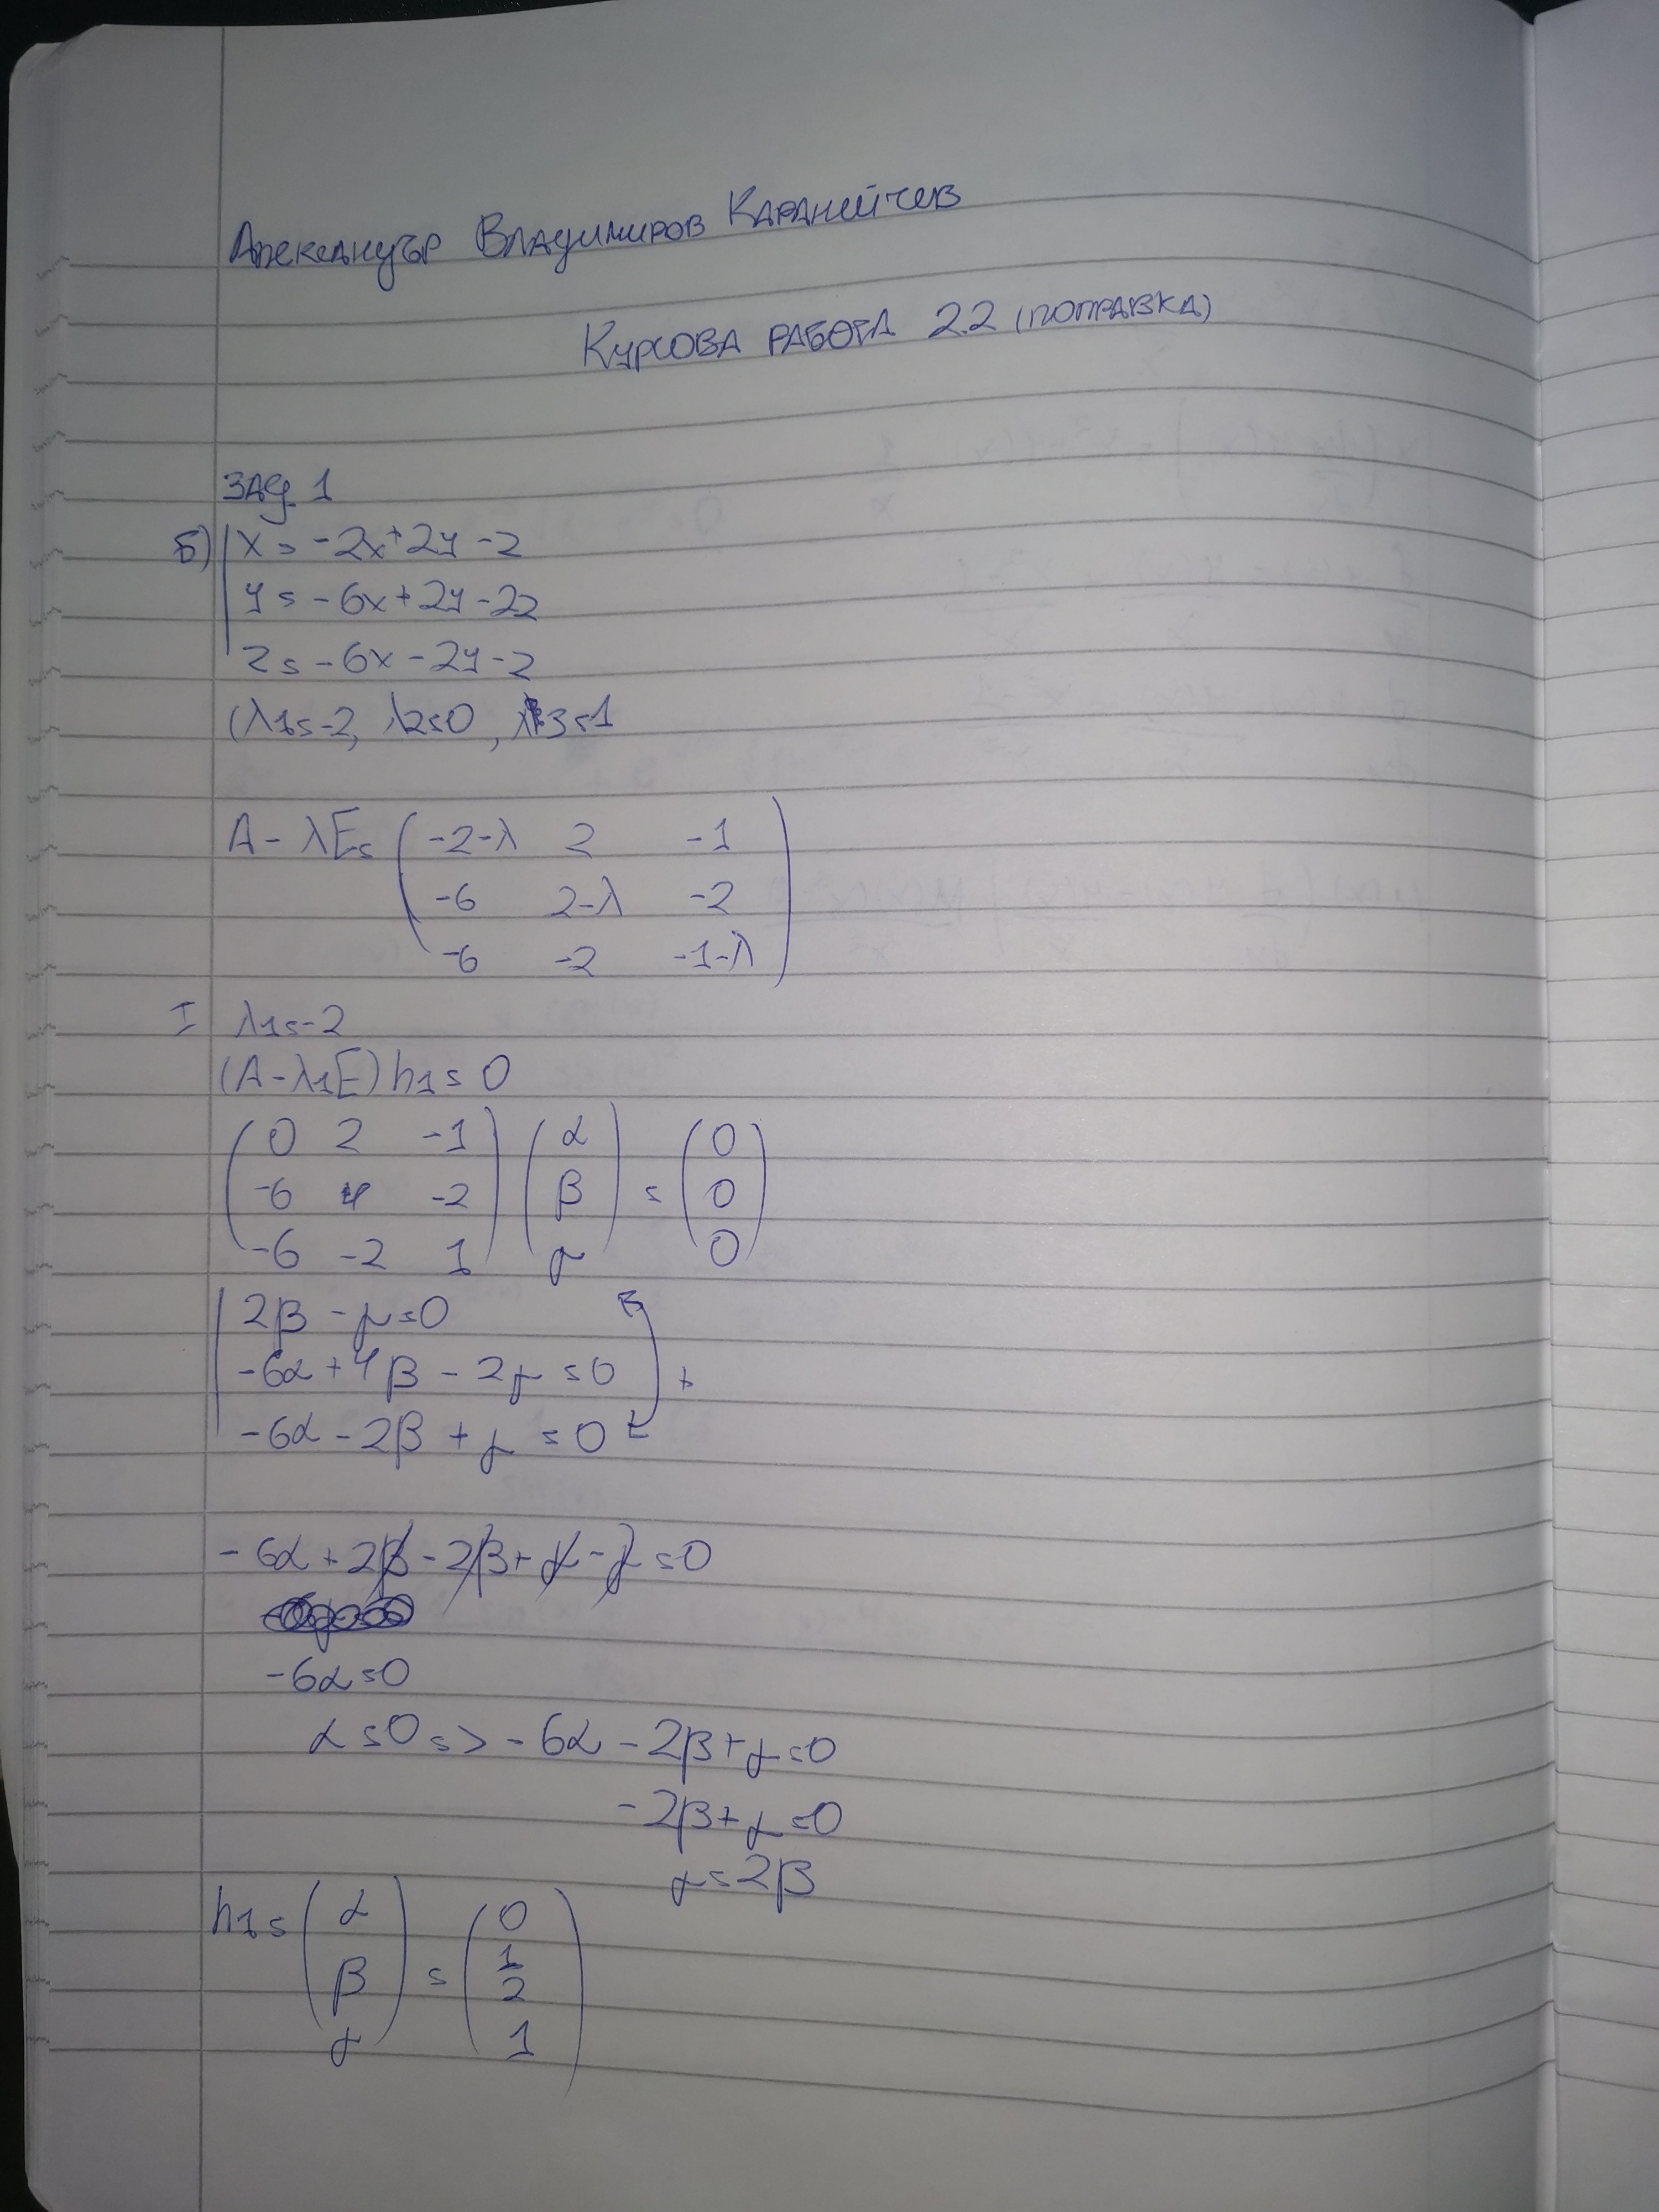 Александър Владимиров Каранейчев
Курсова работа 2.2 (поправка)
Зад. 1
б) | x = -2x + 2y - z
y = -6x + 2y - 2z
z = -6x - 2y - z
(λ1 = -2, λ2 = 0, λ3 = 1
A - λE = ( -2-λ 2 -1
-6 2-λ -2
-6 -2 -1-λ )
I λ1 = -2
(A - λ1E) h1 = 0
( 0 2 -1 ) ( α ) = ( 0 )
( -6 4 -2 ) ( β ) = ( 0 )
( -6 -2 1 ) ( γ ) = ( 0 )
| 2β - γ = 0
-6α + 4β - 2γ = 0 +
-6α - 2β + γ = 0
-6α + 2β - 2β + γ - γ = 0
-6α = 0
α = 0 => -6α - 2β + γ = 0
-2β + γ = 0
γ = 2β
h1 = ( α β γ ) = ( 0 1/2 1 )